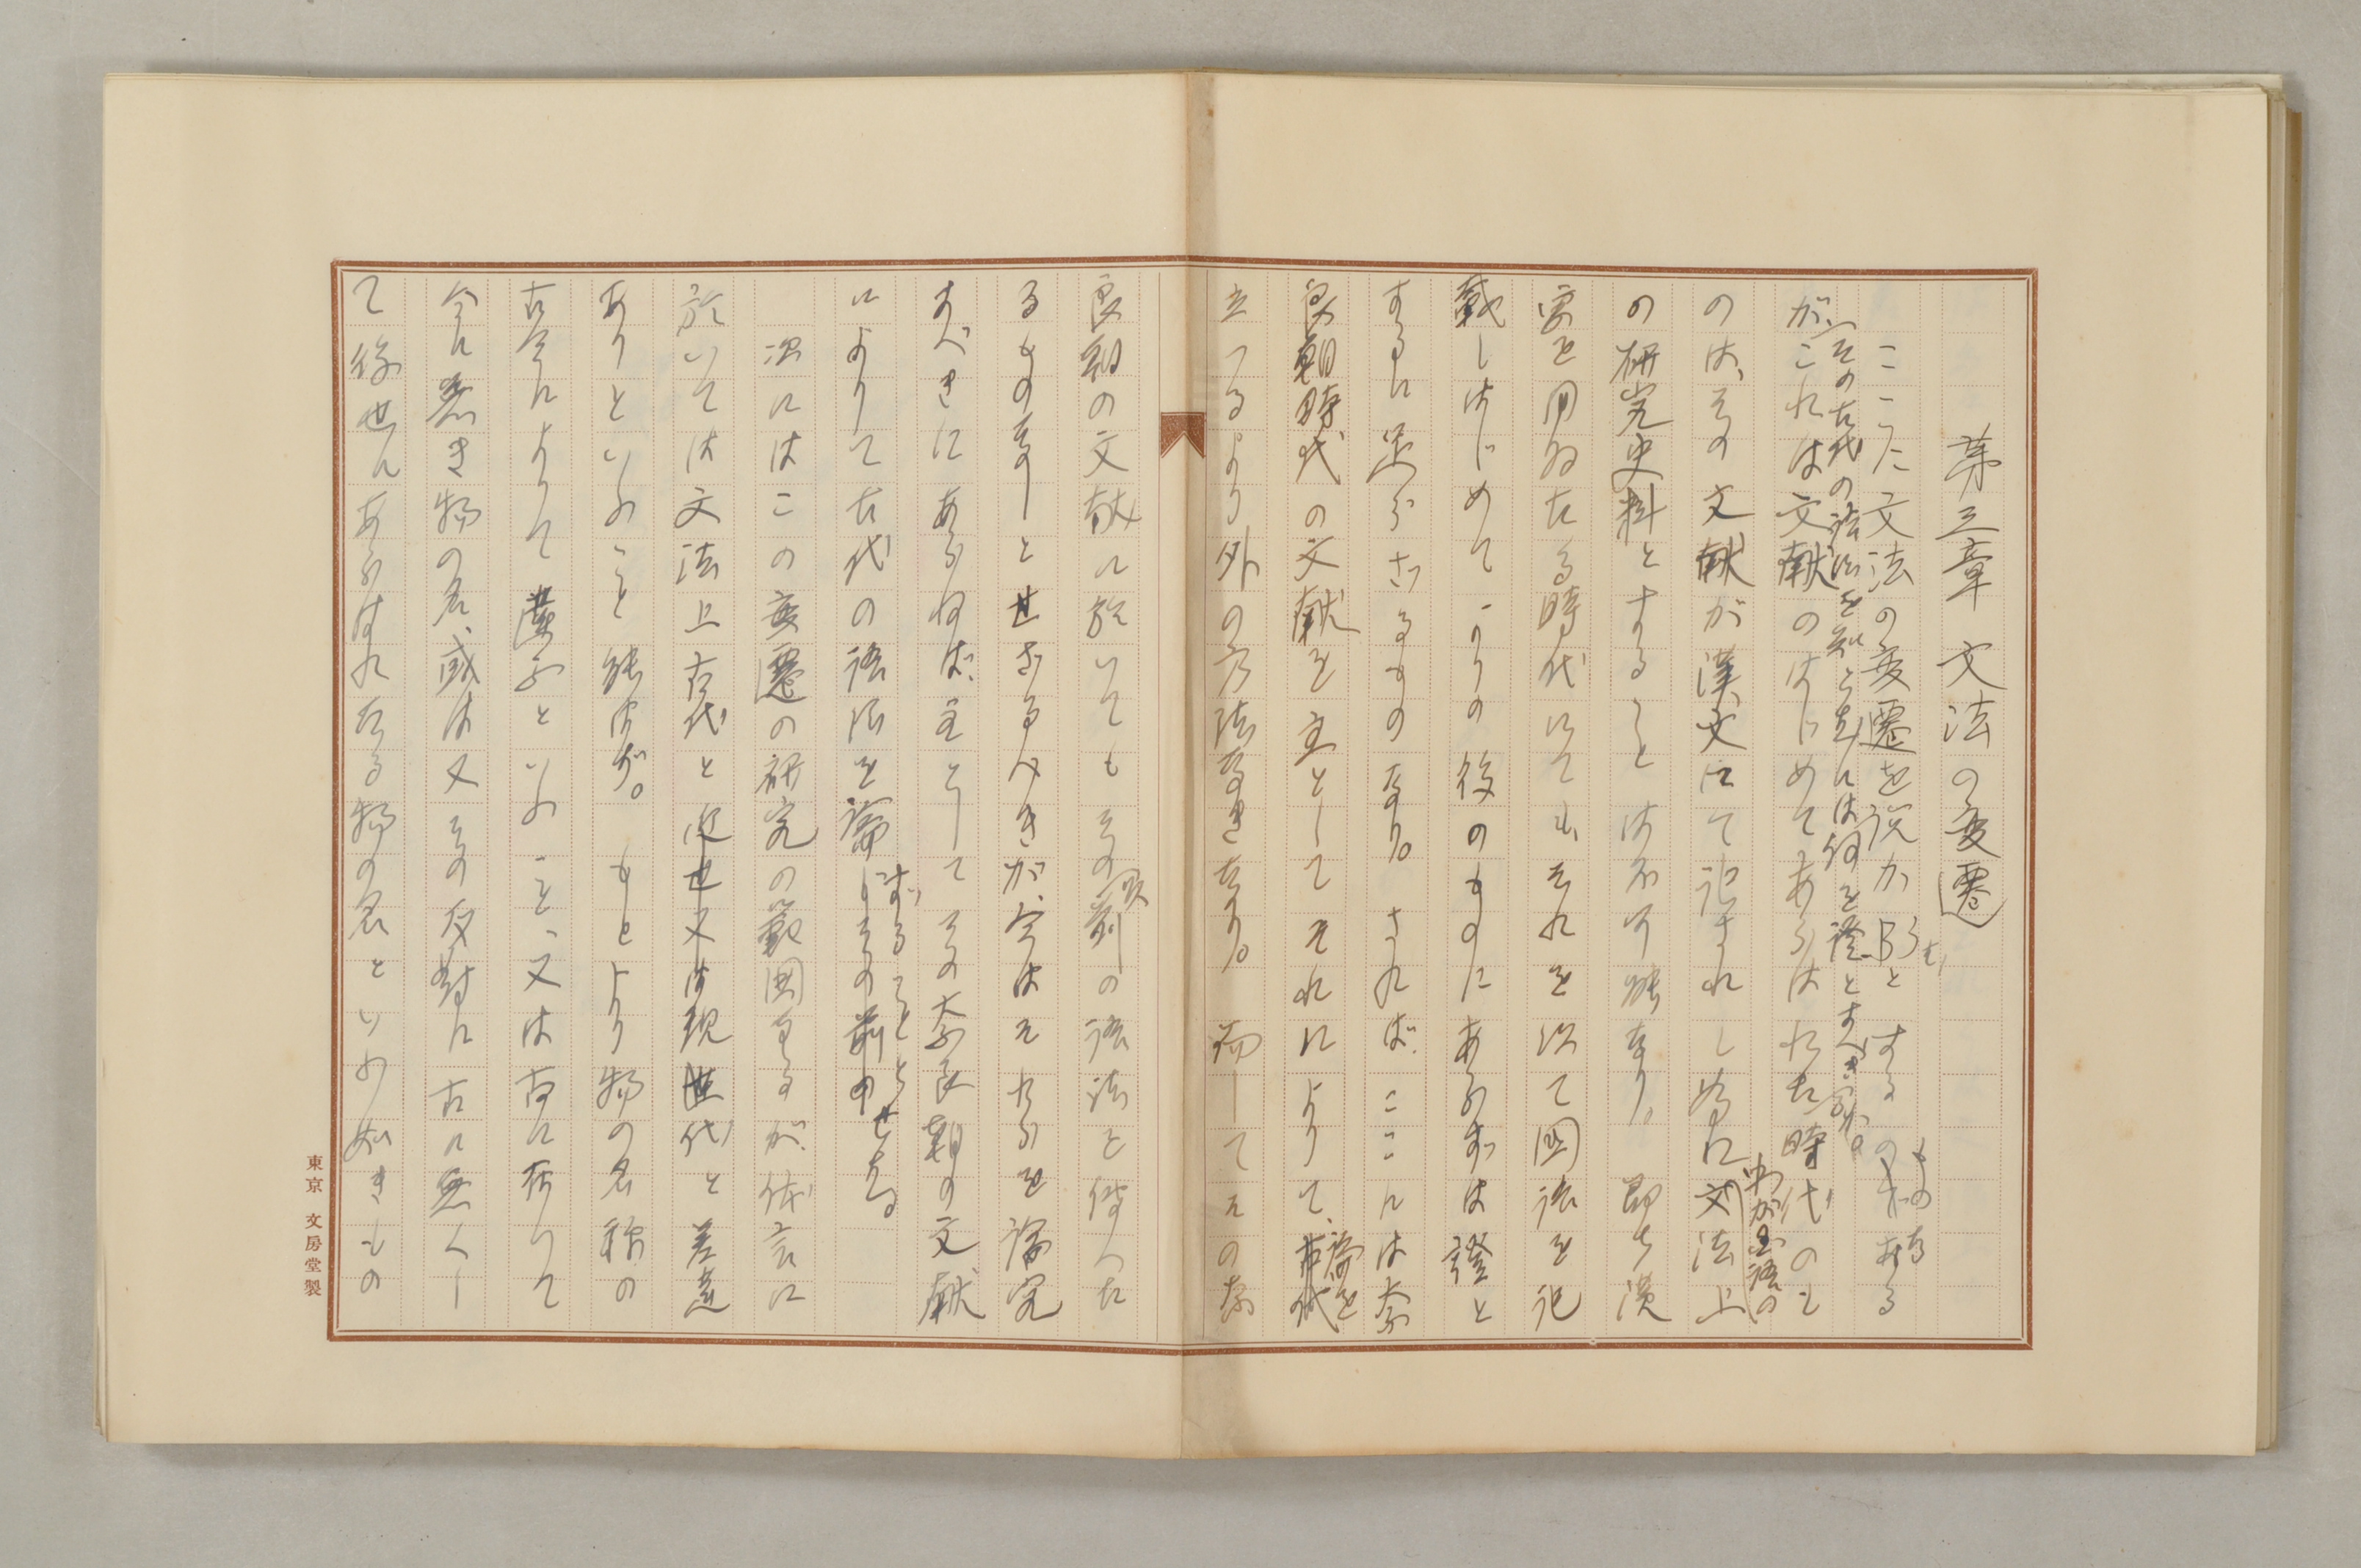 第三章 文法の変遷
ここに文法の変遷を説かむとするものなる
が、その古代の語法を知らむには何を證とすべきか。
これは文献のはじめてあらはれた時代のも
のは、その文献が漢文にて記されし為にわが国語の文法上
の研究史料とすることは不可能なり。 即ち漢
字を用ゐたる時代にてもそれを以て国語を記
載しはじめてよりの後のものにあらずは證と
するに足らざるものなり。 されば、ここには奈
良朝時代の文献を主としてそれによりて、論を
立つるより外の方法なきなり。 而してその奈
良朝の文献に於いてもその以前の語法を傳へた
るもの無しとせざるべきが、今はそれらを論究
すべきにあらねば、主としてその奈良朝の文献
によりて古代の語法を論ずることとせむ。
次にはこの変遷の研究の範囲なるが、体言に
於いては文法上古代と近世又は現世代と差違
ありといふこと能はず。 もとより物の名称の
古今によりて違ふといふこと、又は古に有りて
今に無き物の名、或は又その反対に古に無くし
て後世にあらはれたる物の名といふ如きもの
東京 文房堂製